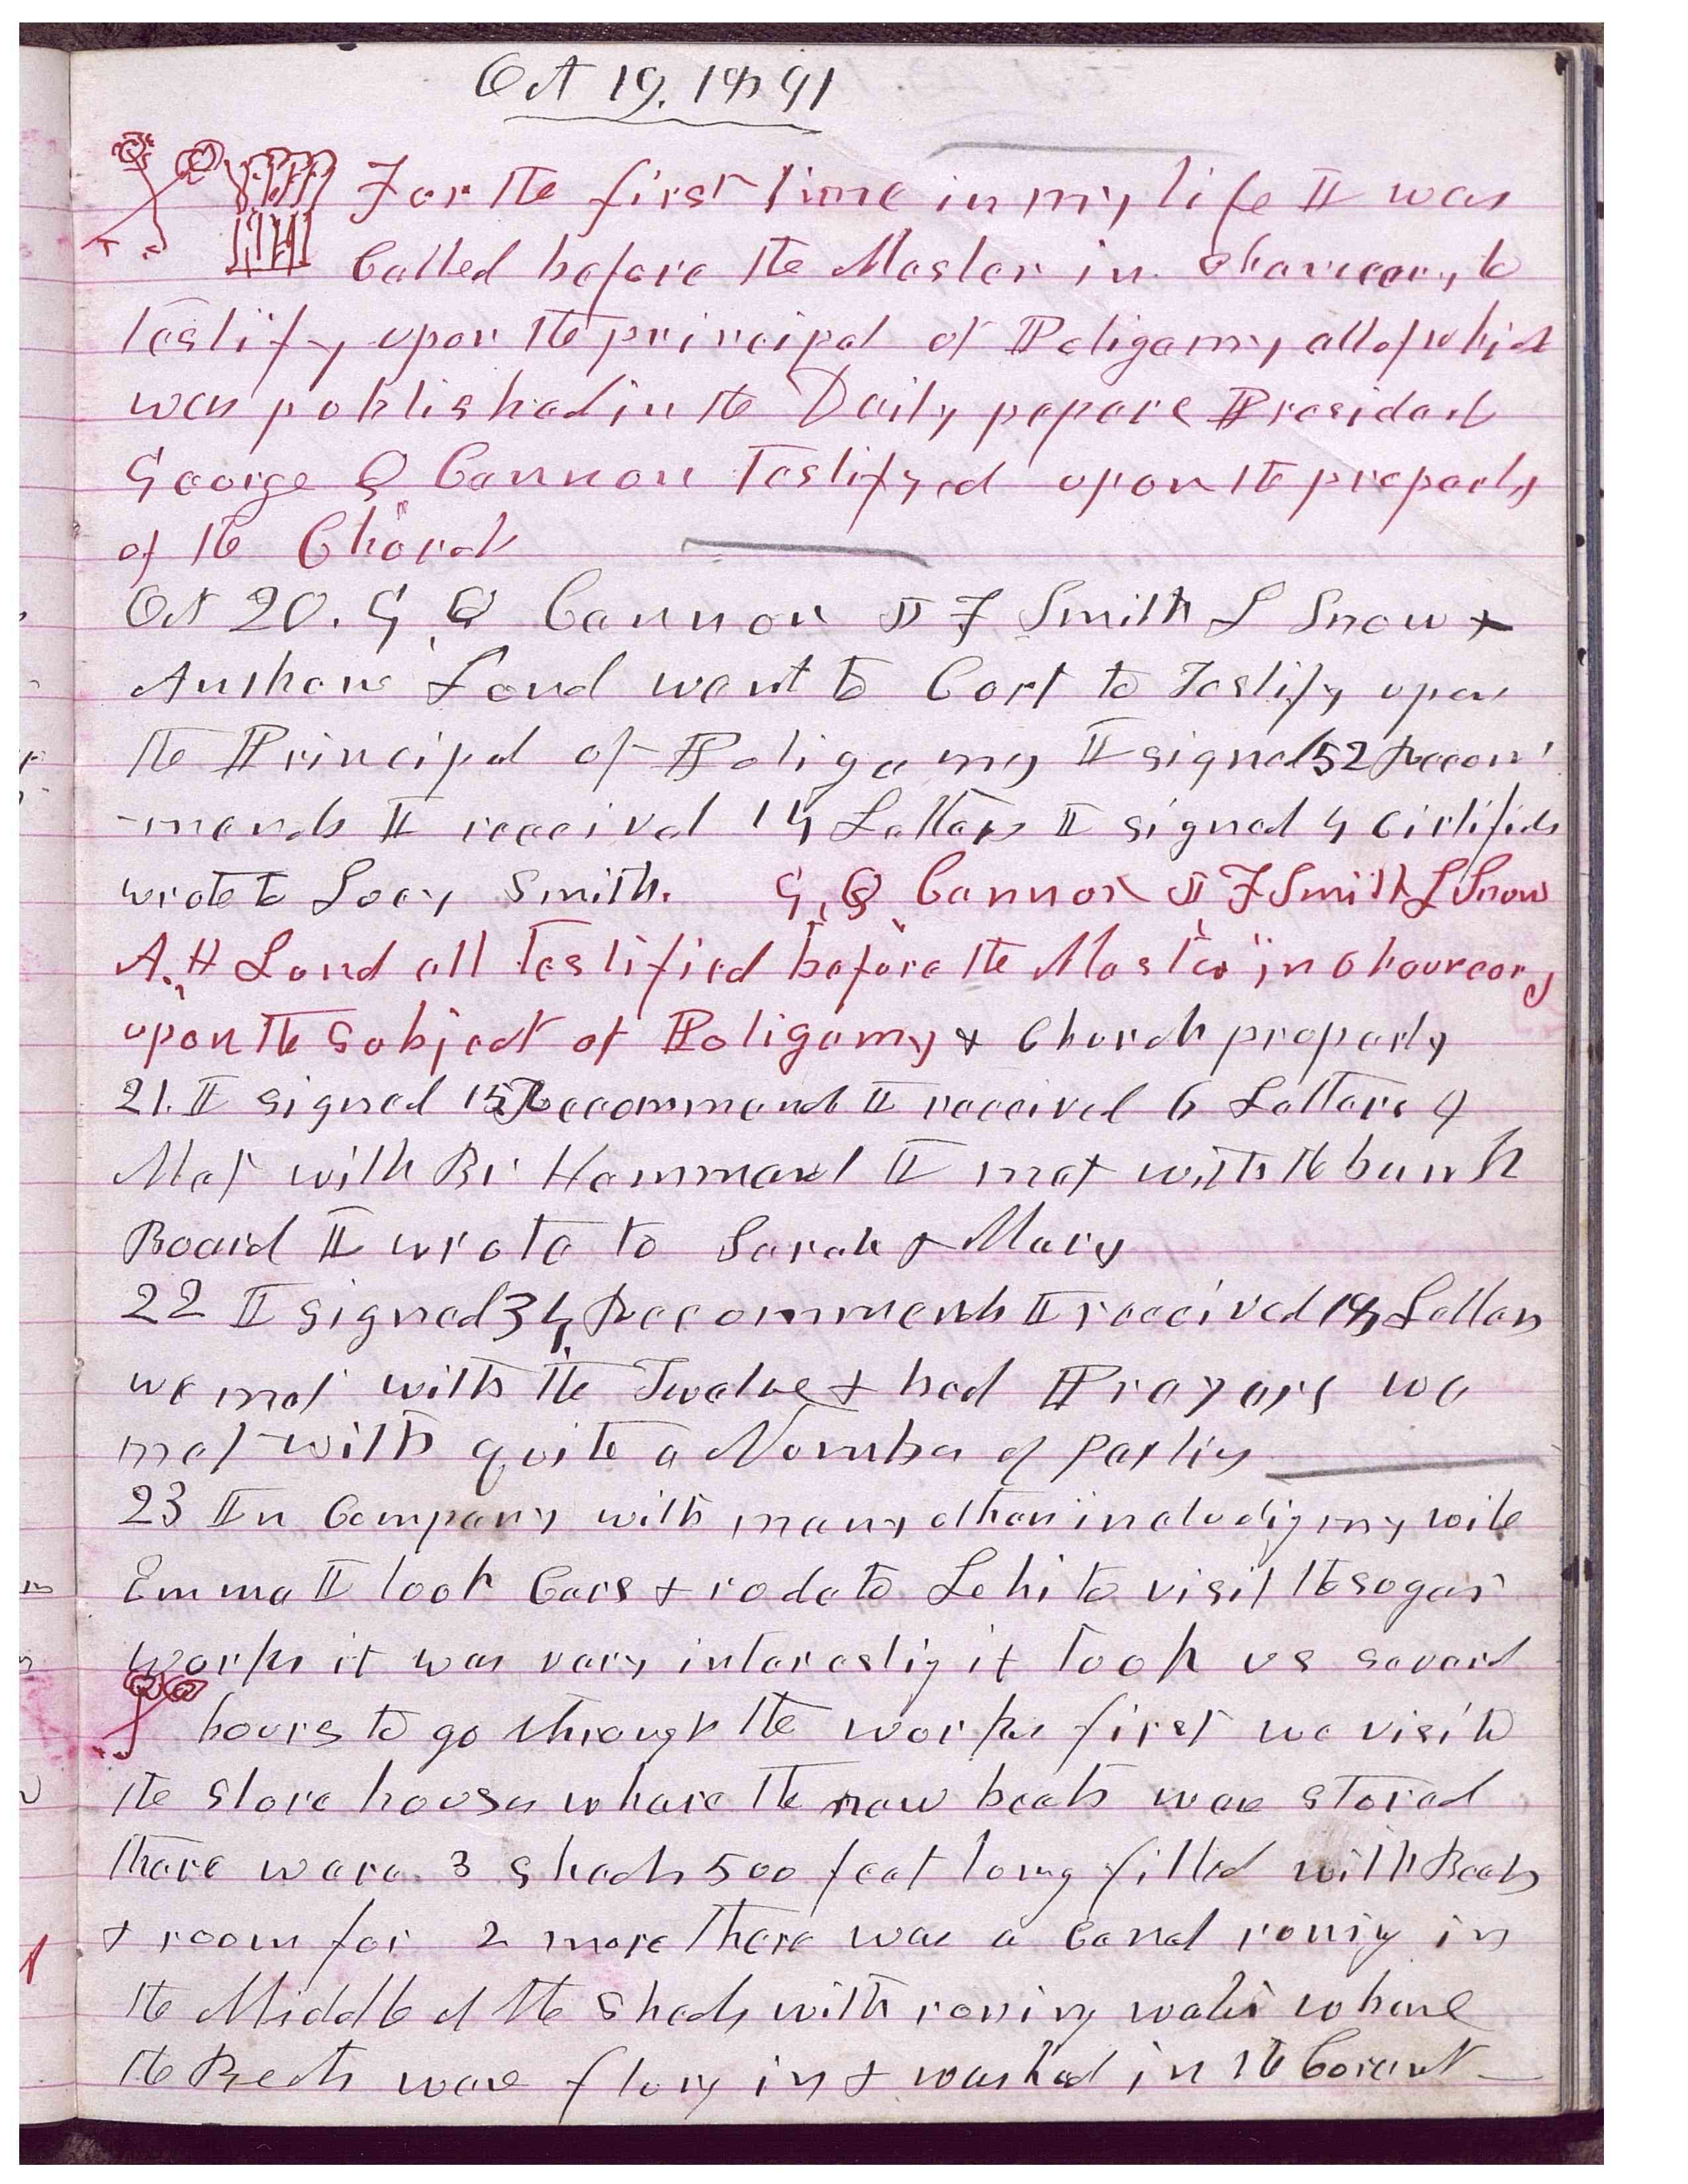 Oct 19, 1891
For the first time in my life I was
Called before the Master in Chancery to
testify upon the principal of Poligamy all of which
was published in the Daily papers President
George Q Cannon Testifyed upon the property
of the Church
Oct 20. G Q Cannon J F Smith L Snow &
Anthon Lund went to Cort to Testify upon
the Principal of Poligamy I signed 52 Recom
-mends I received 14 Letters I signed 4
wrote to Lucy Smith. G, Q Cannon J F Smith L Snow
A. H Lund all testified before the Master in Chancery
upon the subject of Poligamy & Church property
21. I signed 15 Recommends I received 6 Letters I
Met with Br Hammond I met with the bank
Board I wrote to Sarah & Mary
22 I signed 34 Recommends I received 18 Letters
we met with the Twelve & had Prayers we
met with quite a Number of Parties
23 In Company with many others includig my wife
Emma I took Cars & rode to Lehi to visit the sugar
works it was very interestig it took us severl
hours to go through the works first we visitd
the store houses whare the raw beets were stored
there were 3 sheds 500 feet long filled with Beets
& room for 2 more there was a Canal runig in
the Middle of the sheds with runing water whare
the Beets ware flung in & washed in the Curent